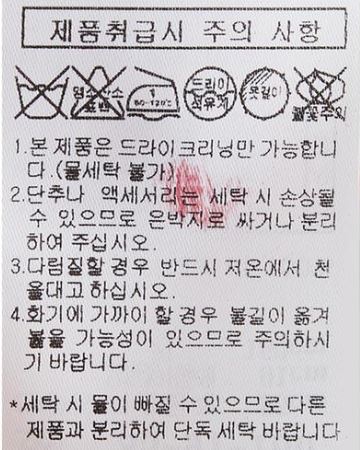 제품취급시 주의 사항
염소산소
표백
1
80~120℃
드라이
석유계
옷걸이
불꽃주의
1.본 제품은 드라이크리닝만 가능합니
다.(물세탁 불가)
2.단추나 액세서리는 세탁 시 손상될
수 있으므로 은박지로 싸거나 분리
하여 주십시오.
3.다림질할 경우 반드시 저온에서 천
을대고 하십시오.
4.화기에 가까이 할 경우 불길이 옮겨
붙을 가능성이 있으므로 주의하시
기 바랍니다.
*세탁 시 물이 빠질 수 있으므로 다른
제품과 분리하여 단독 세탁 바랍니다.